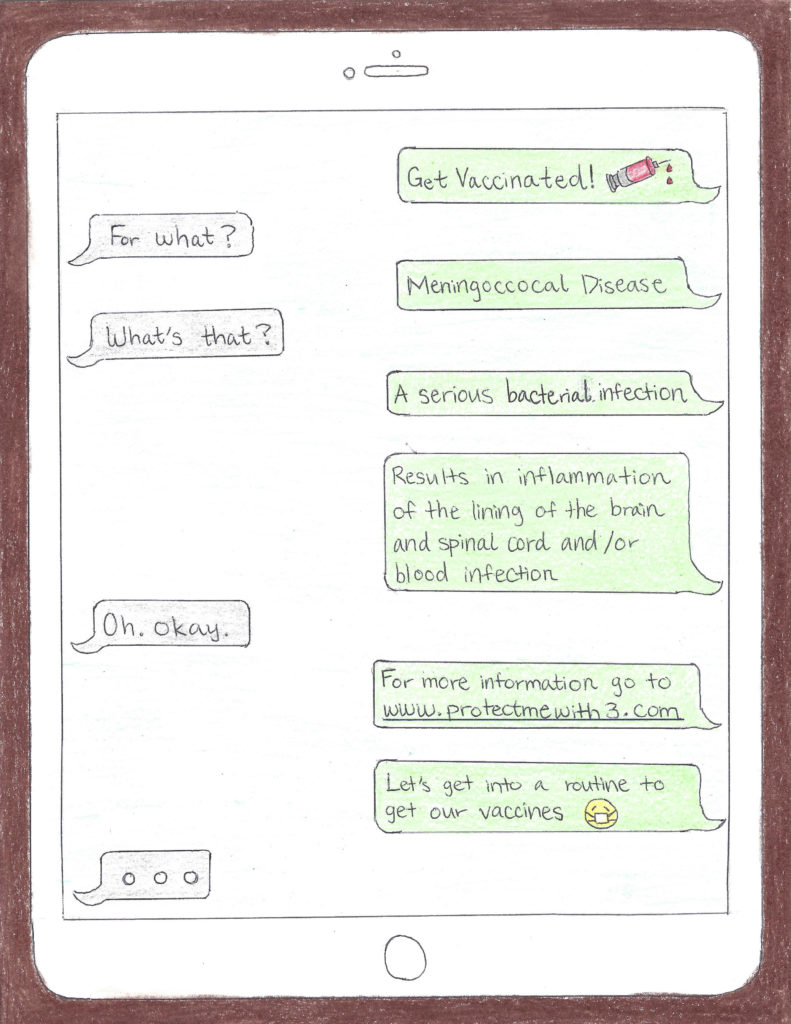 Get Vaccinated!
For what?
Meningoccocal Disease
What's that?
A serious bacterial infection
Results in inflammation
of the lining of the brain
and spinal cord and/or
blood infection
Oh. okay.
For more information go to
www.protectmewith3.com
Let's get into a routine to
get our vaccines